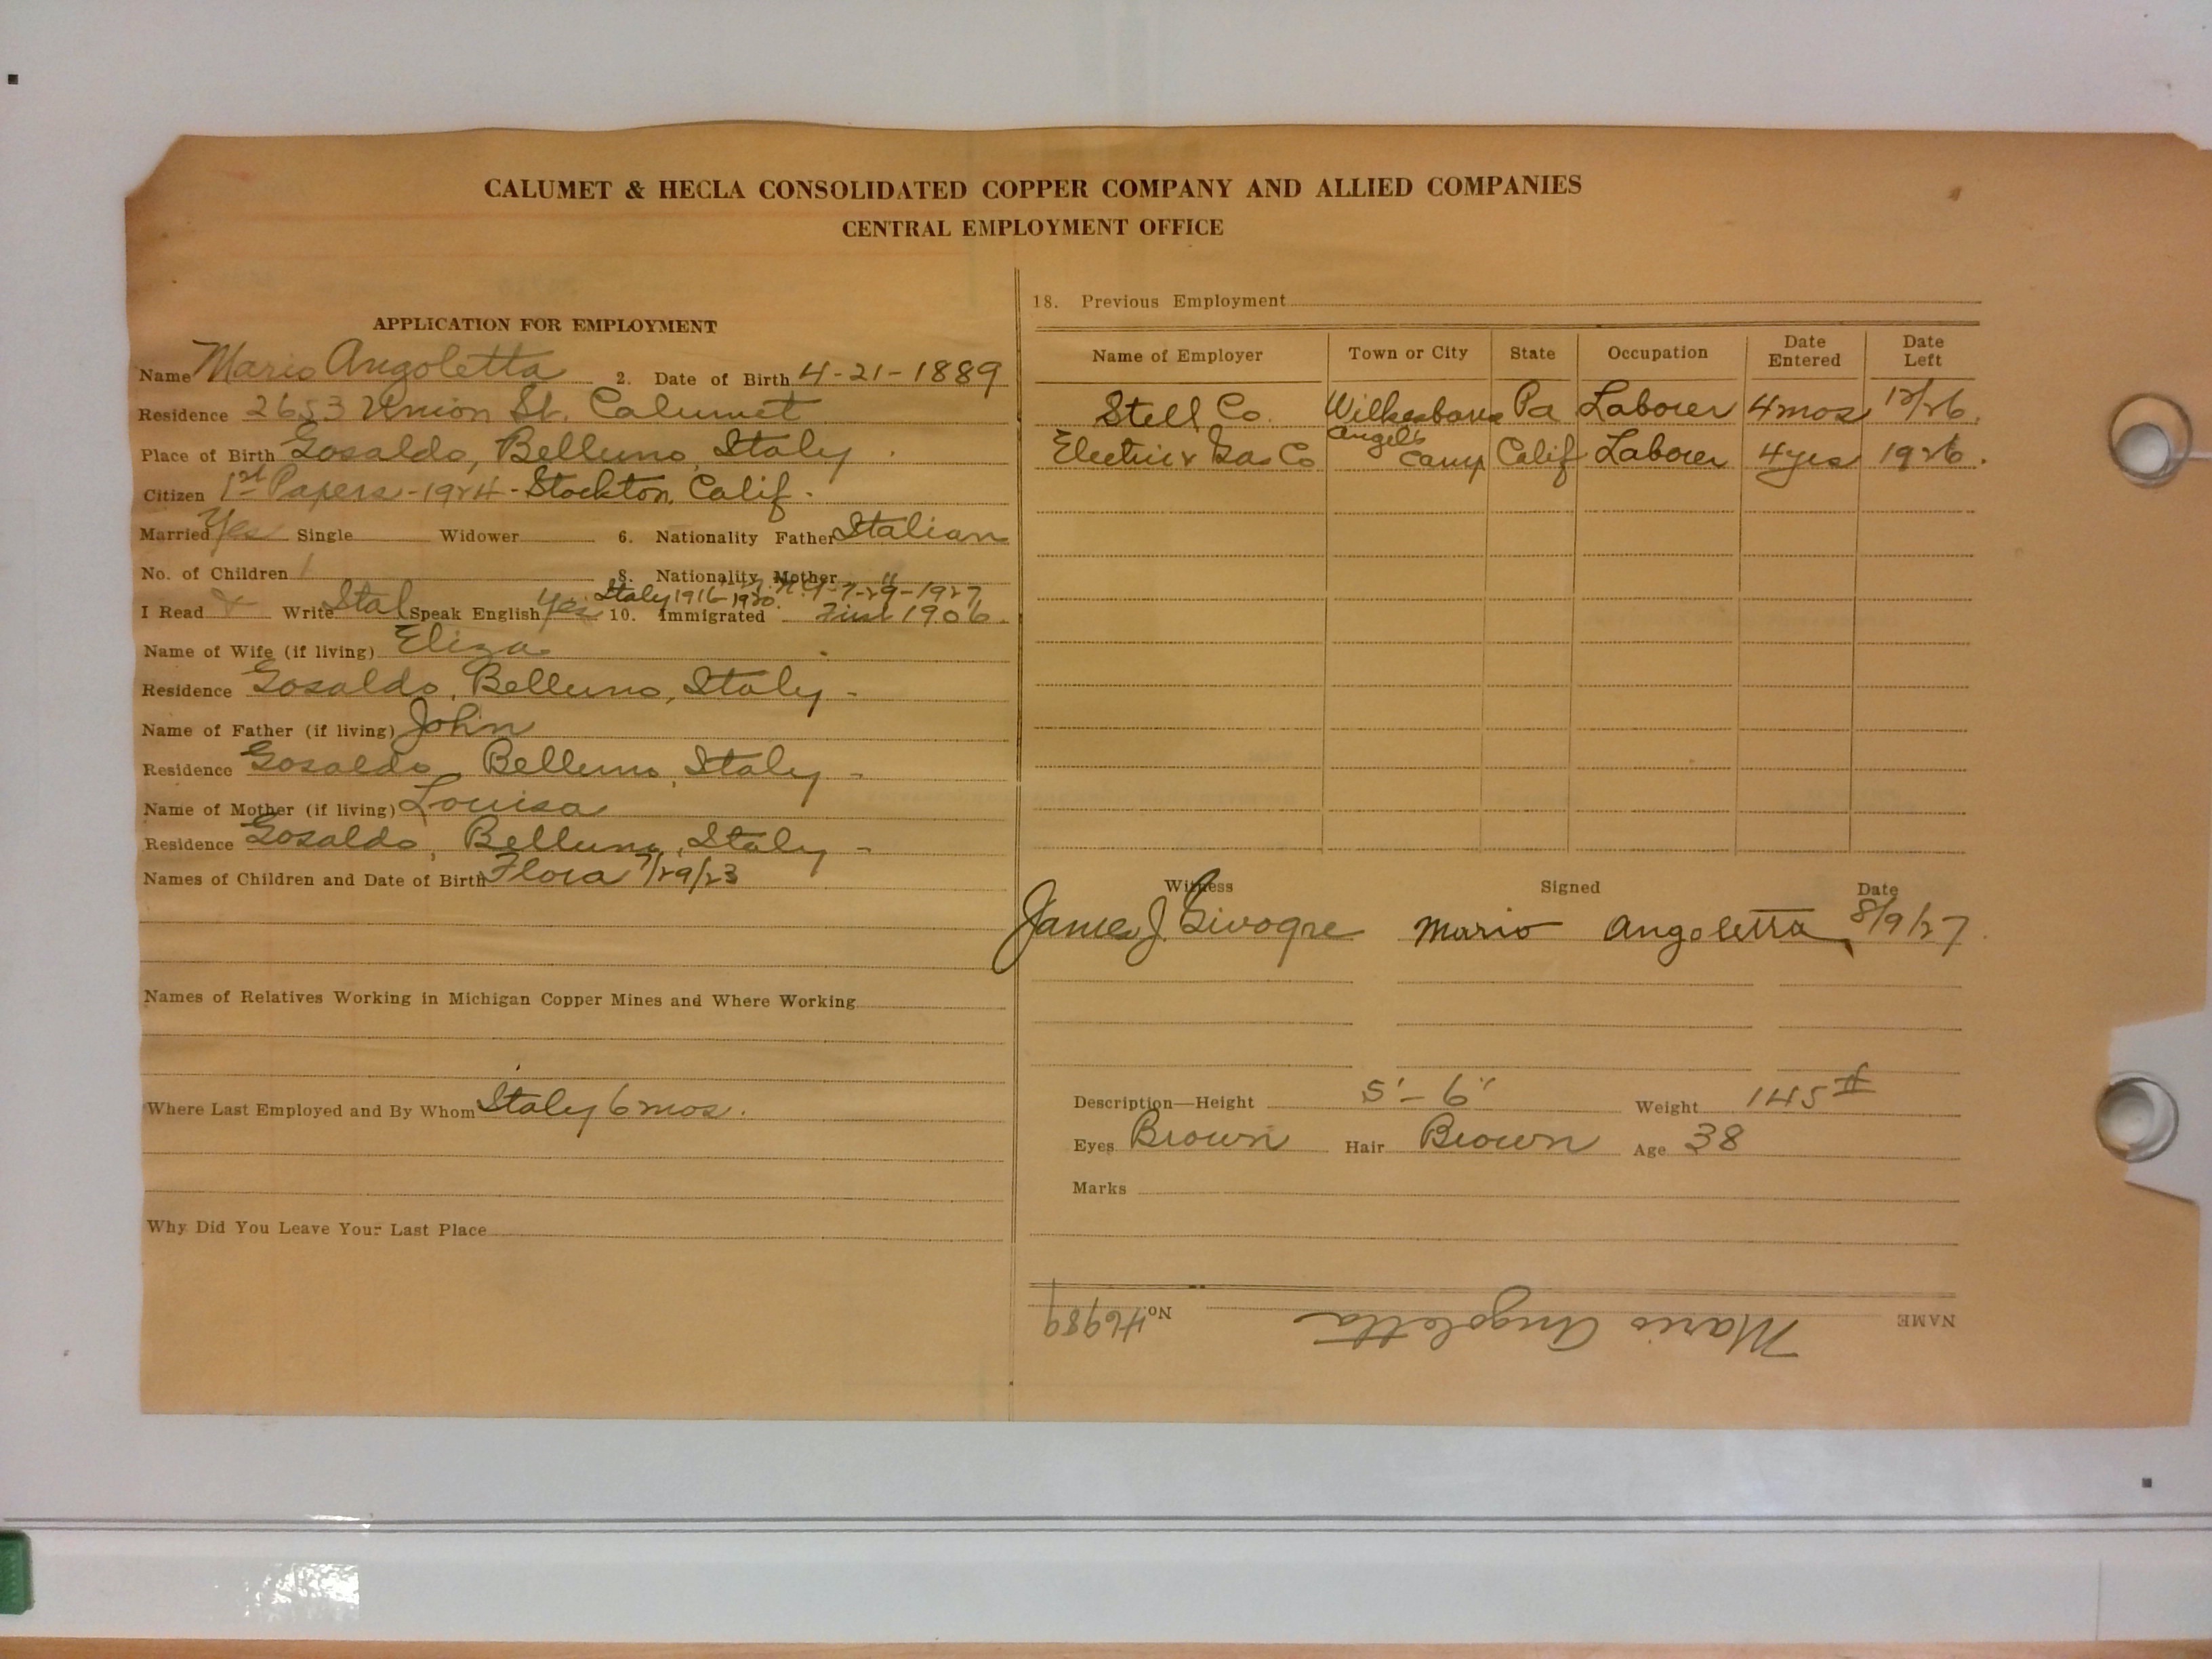 CALUMET & HECLA CONSOLIDATED COPPER COMPANY AND ALLIED COMPANIES
CENTRAL EMPLOYMENT OFFICE
APPLICATION FOR EMPLOYMENT
Name Mario Angoletta 2. Date of Birth 4-21-1889
Residence 2653 Union St. Calumet
Place of Birth Gosaldo, Belluno, Italy
Citizen 1st Papers - 1924 - Stockton, Calif.
Married Yes Single Widower 6. Nationality Father Italian
No. of Children 1 8. Nationality Mother "
Italy 1916-1920. N.Y-7-29-1927
I Read & Write Ital Speak English Yes 10. Immigrated First 1906.
Name of Wife (if living) Eliza
Residence Gosaldo, Belluno, Italy -
Name of Father (if living) John
Residence Gosaldo, Belluno, Italy -
Name of Mother (if living) Louisa
Residence Gosaldo, Belluno, Italy -
Names of Children and Date of Birth Flora 7/29/23
Names of Relatives Working in Michigan Copper Mines and Where Working
Where Last Employed and By Whom Italy 6 mos.
Why Did You Leave Your Last Place
18. Previous Employment
Name of Employer Town or City State Occupation Date Entered Date Left
Stell Co. Wilkesbarre Pa Laborer 4 mos 12/26.
Electric & Gas Co Angels Camp Calif Laborer 4 yrs 1926.
Witness Signed Date
James J. Mario Angoletta 8/9/27
Description—Height 5'-6" Weight 145#
Eyes Brown Hair Brown Age 38
Marks
NAME Mario Angoletta No. 46989